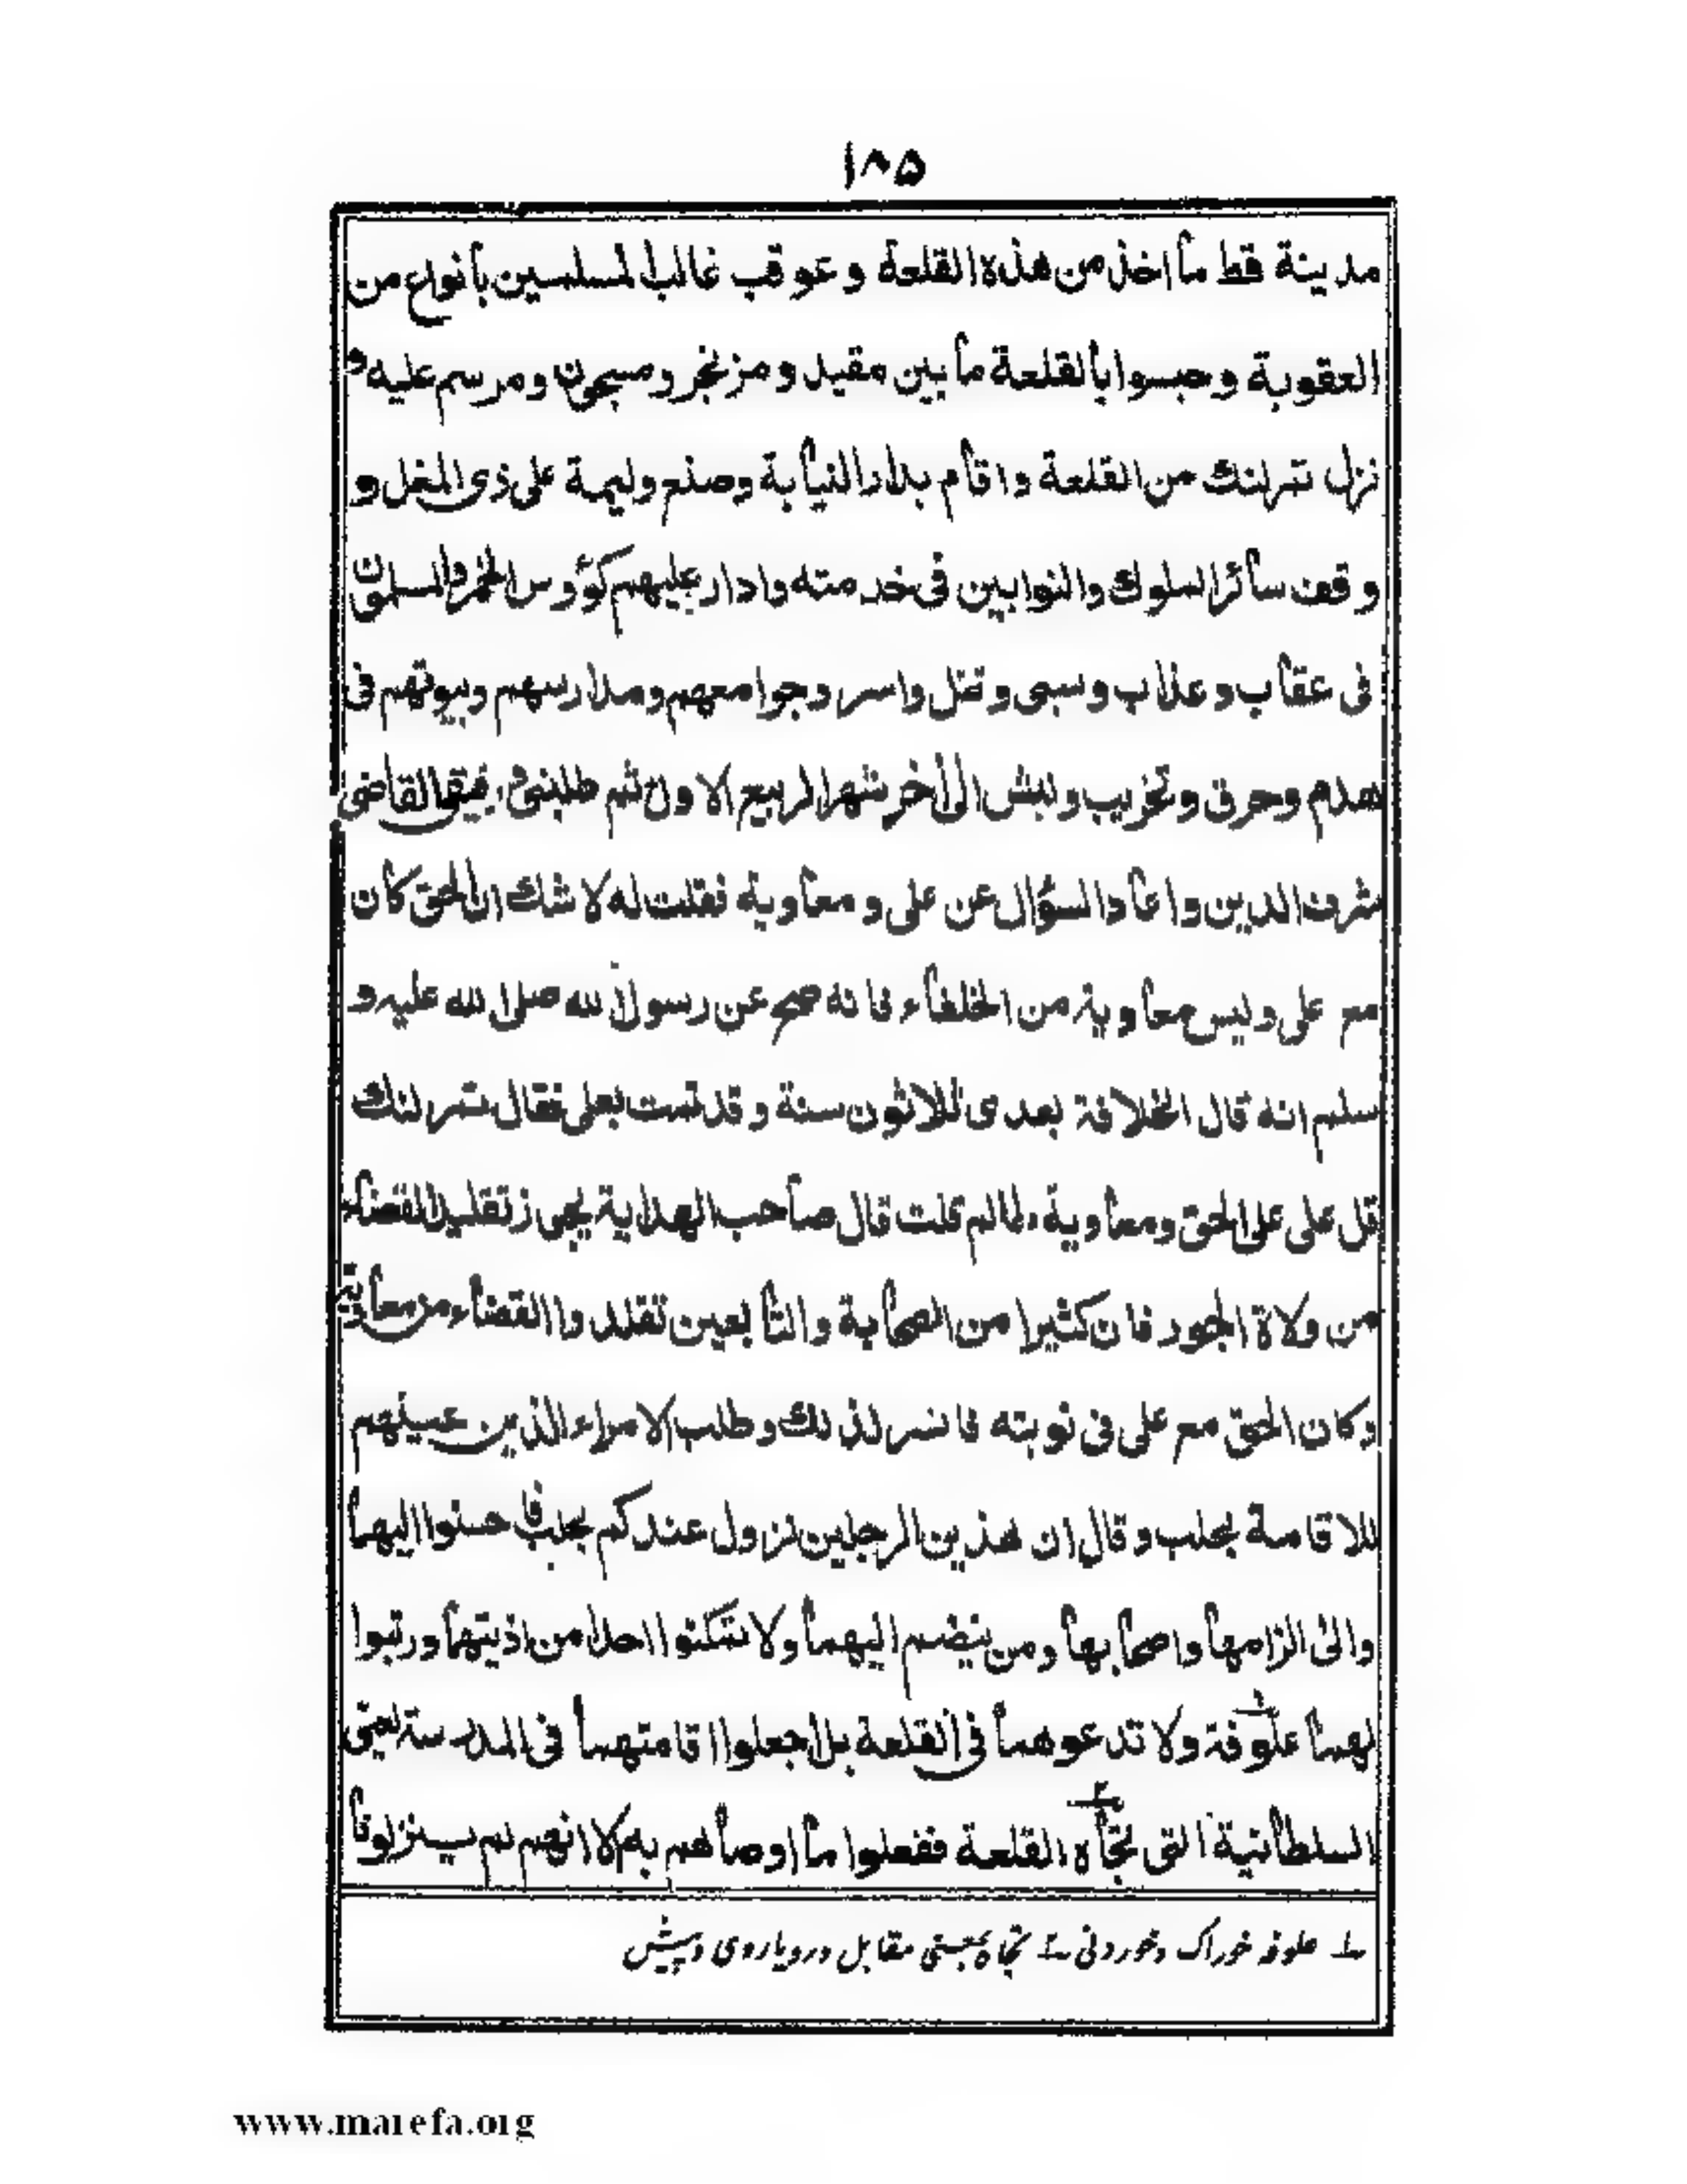 ١٨٥
مدينة قط ما اخذ من هذه القلعة و عوقب غالب المسلمين بأنواع من
العقوبة و حبسوا بالقلعة ما بين مقيد و مزنجر و مسجون و مرسم عليه و
نزل تمرلنك من القلعة و اقام بدار النيابة وصنع وليمة على ذى المغل و
وقف سائر الملوك والنوابين فى خدمته وادار عليهم كؤوس الخمر والمسلمون
فى عقاب و عذاب و سبى و قتل و اسر و جوامعهم و مدارسهم وبيوتهم فى
هدم و حرق و تخريب و نبش الى أخر شهر الربيع الاول ثم طلبنى و رفيقى القاضى
شرف الدين و اعاد السؤال عن على و معاوية فقلت له لا شك ان الحق كان
مع على وليس معاوية من الخلفاء فانه صح عن رسول الله صلى الله عليه و
سلم انه قال الخلافة بعدى ثلاثون سنة و قد تمت بعلى فقال تمرلنك
قل على على الحق و معاوية ظالم قلت قال صاحب الهداية يجوز تقليد القضاء
من ولاة الجور فان كثيرا من الصحابة و التابعين تقلدوا القضاء من معاوية
وكان الحق مع على فى نوبته فانسر لذلك و طلب الامراء الذين عينهم
للاقامة بحلب و قال ان هذين الرجلين نزول عندكم بحلب فاحسنوا اليهما
والى الزامهما واصحابهما ومن ينضم اليهما ولا تمكنوا احدا من اذيتهما ورتبوا
لهما علوفة ولا تدعوهما فى القلعة بل اجعلوا اقامتهما فى المدرسة يعنى
السلطانية التى تجاه القلعة ففعلوا ما اوصاهم به الا انهم لم ينزلونا
١ علوفه خوراك وخوردنى ٢ تجاه بمعنى مقابل ورويا روى وپيش
www.marefa.org